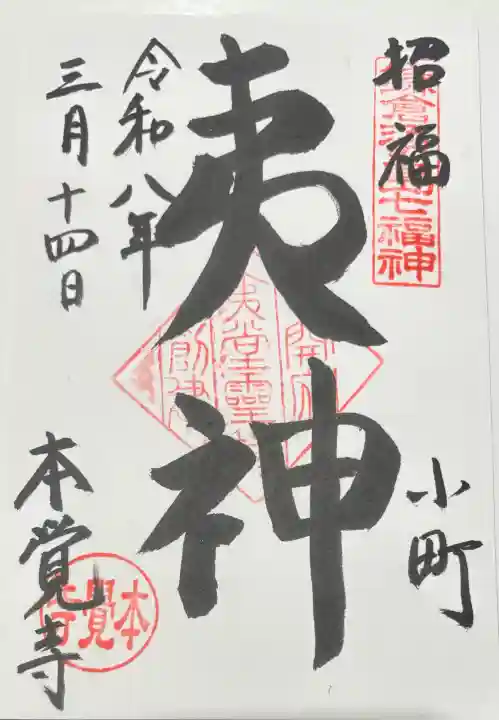 招福
鎌倉江の島七福神
小町
夷神
開運
夷堂霊
創建
令和八年
三月十四日
本覚寺
本覺寺